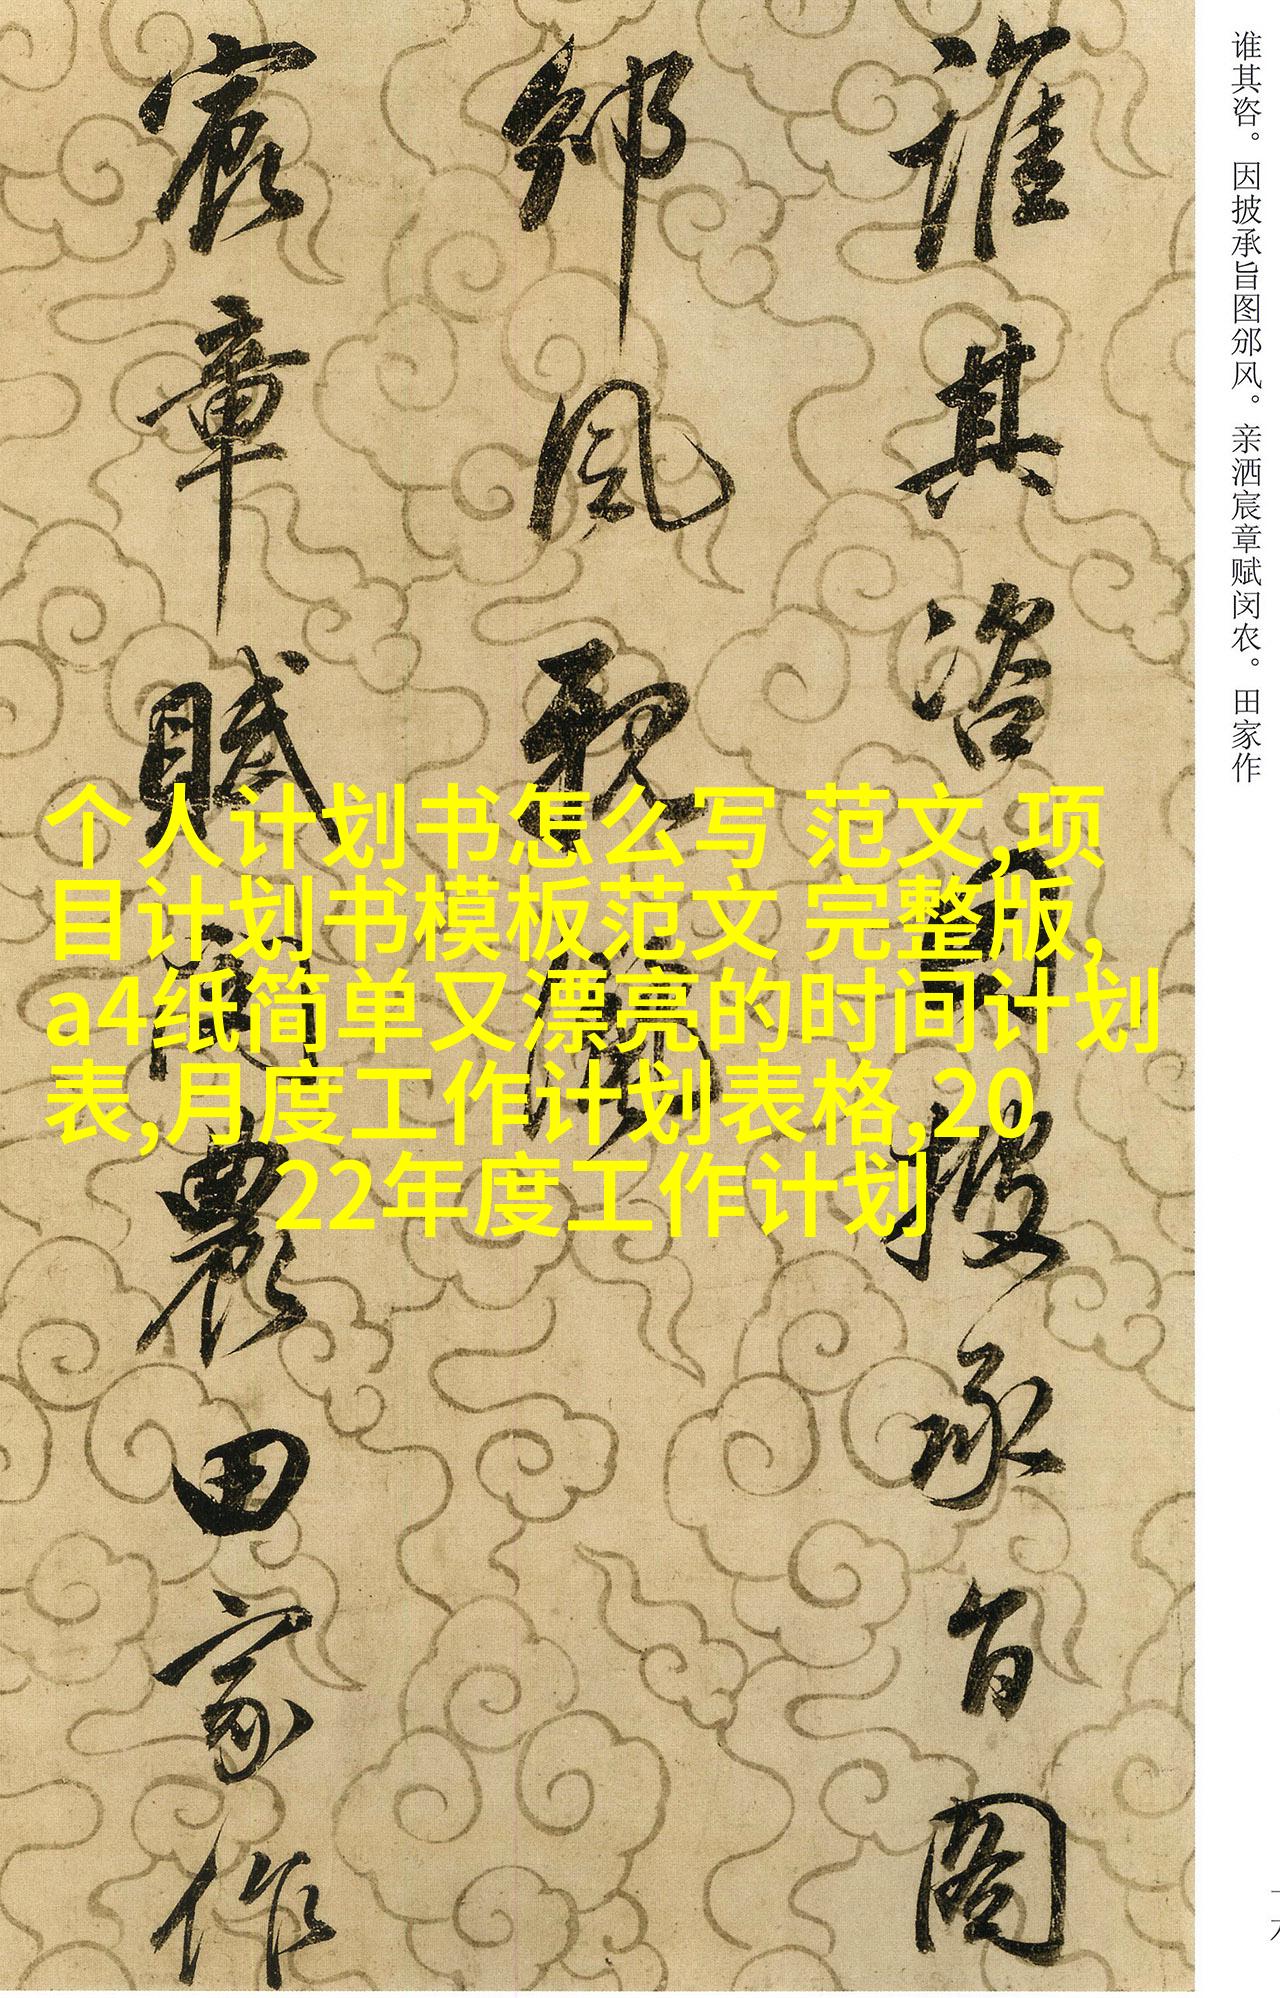 谁其咨。因披承旨图邠风。亲洒宸章赋闵农。田家作
誰其咨因披承旨圖
邠風親灑
宸章賦閔農田家作
个人计划书怎么写 范文,项
目计划书模板范文 完整版,
a4纸简单又漂亮的时间计划
表,月度工作计划表格,20
22年度工作计划